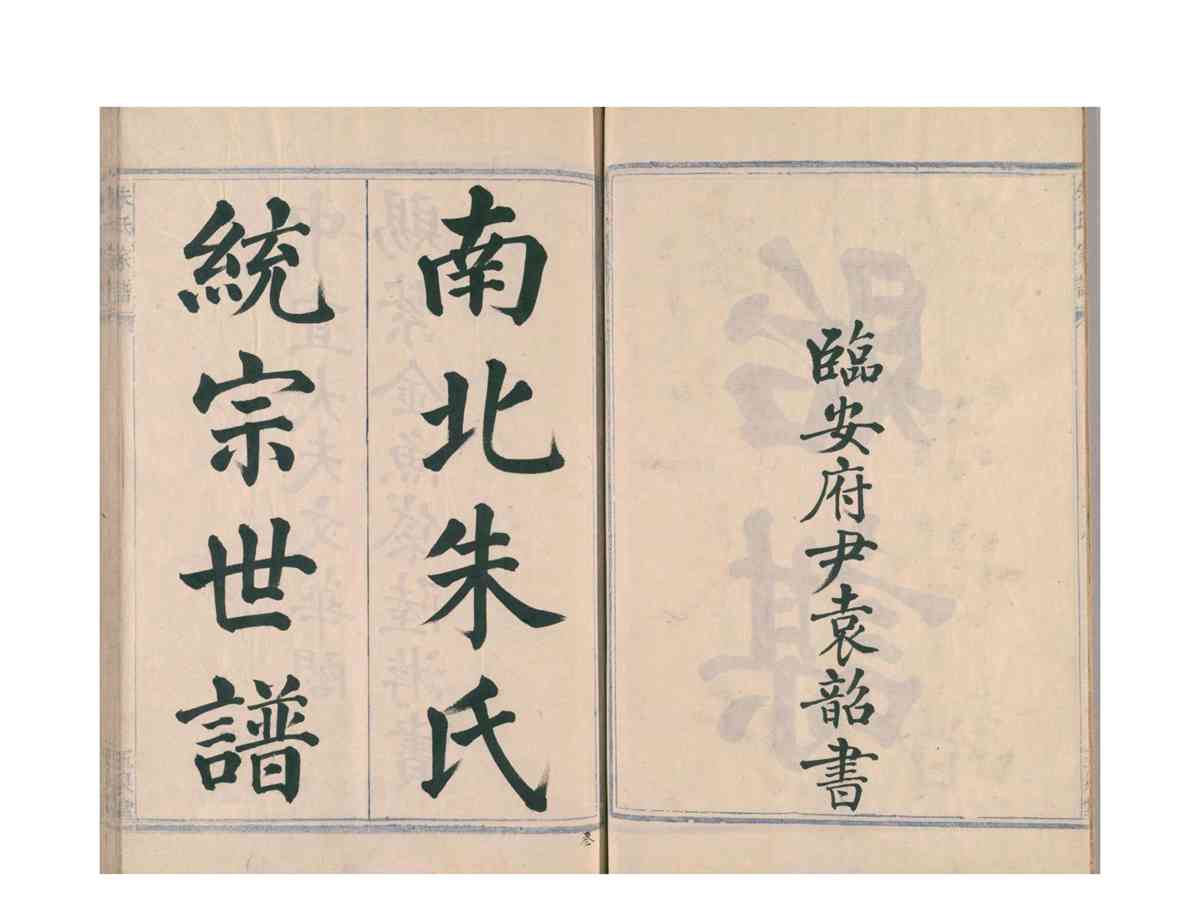 臨安府尹袁韶書
南北朱氏
統宗世譜
叄